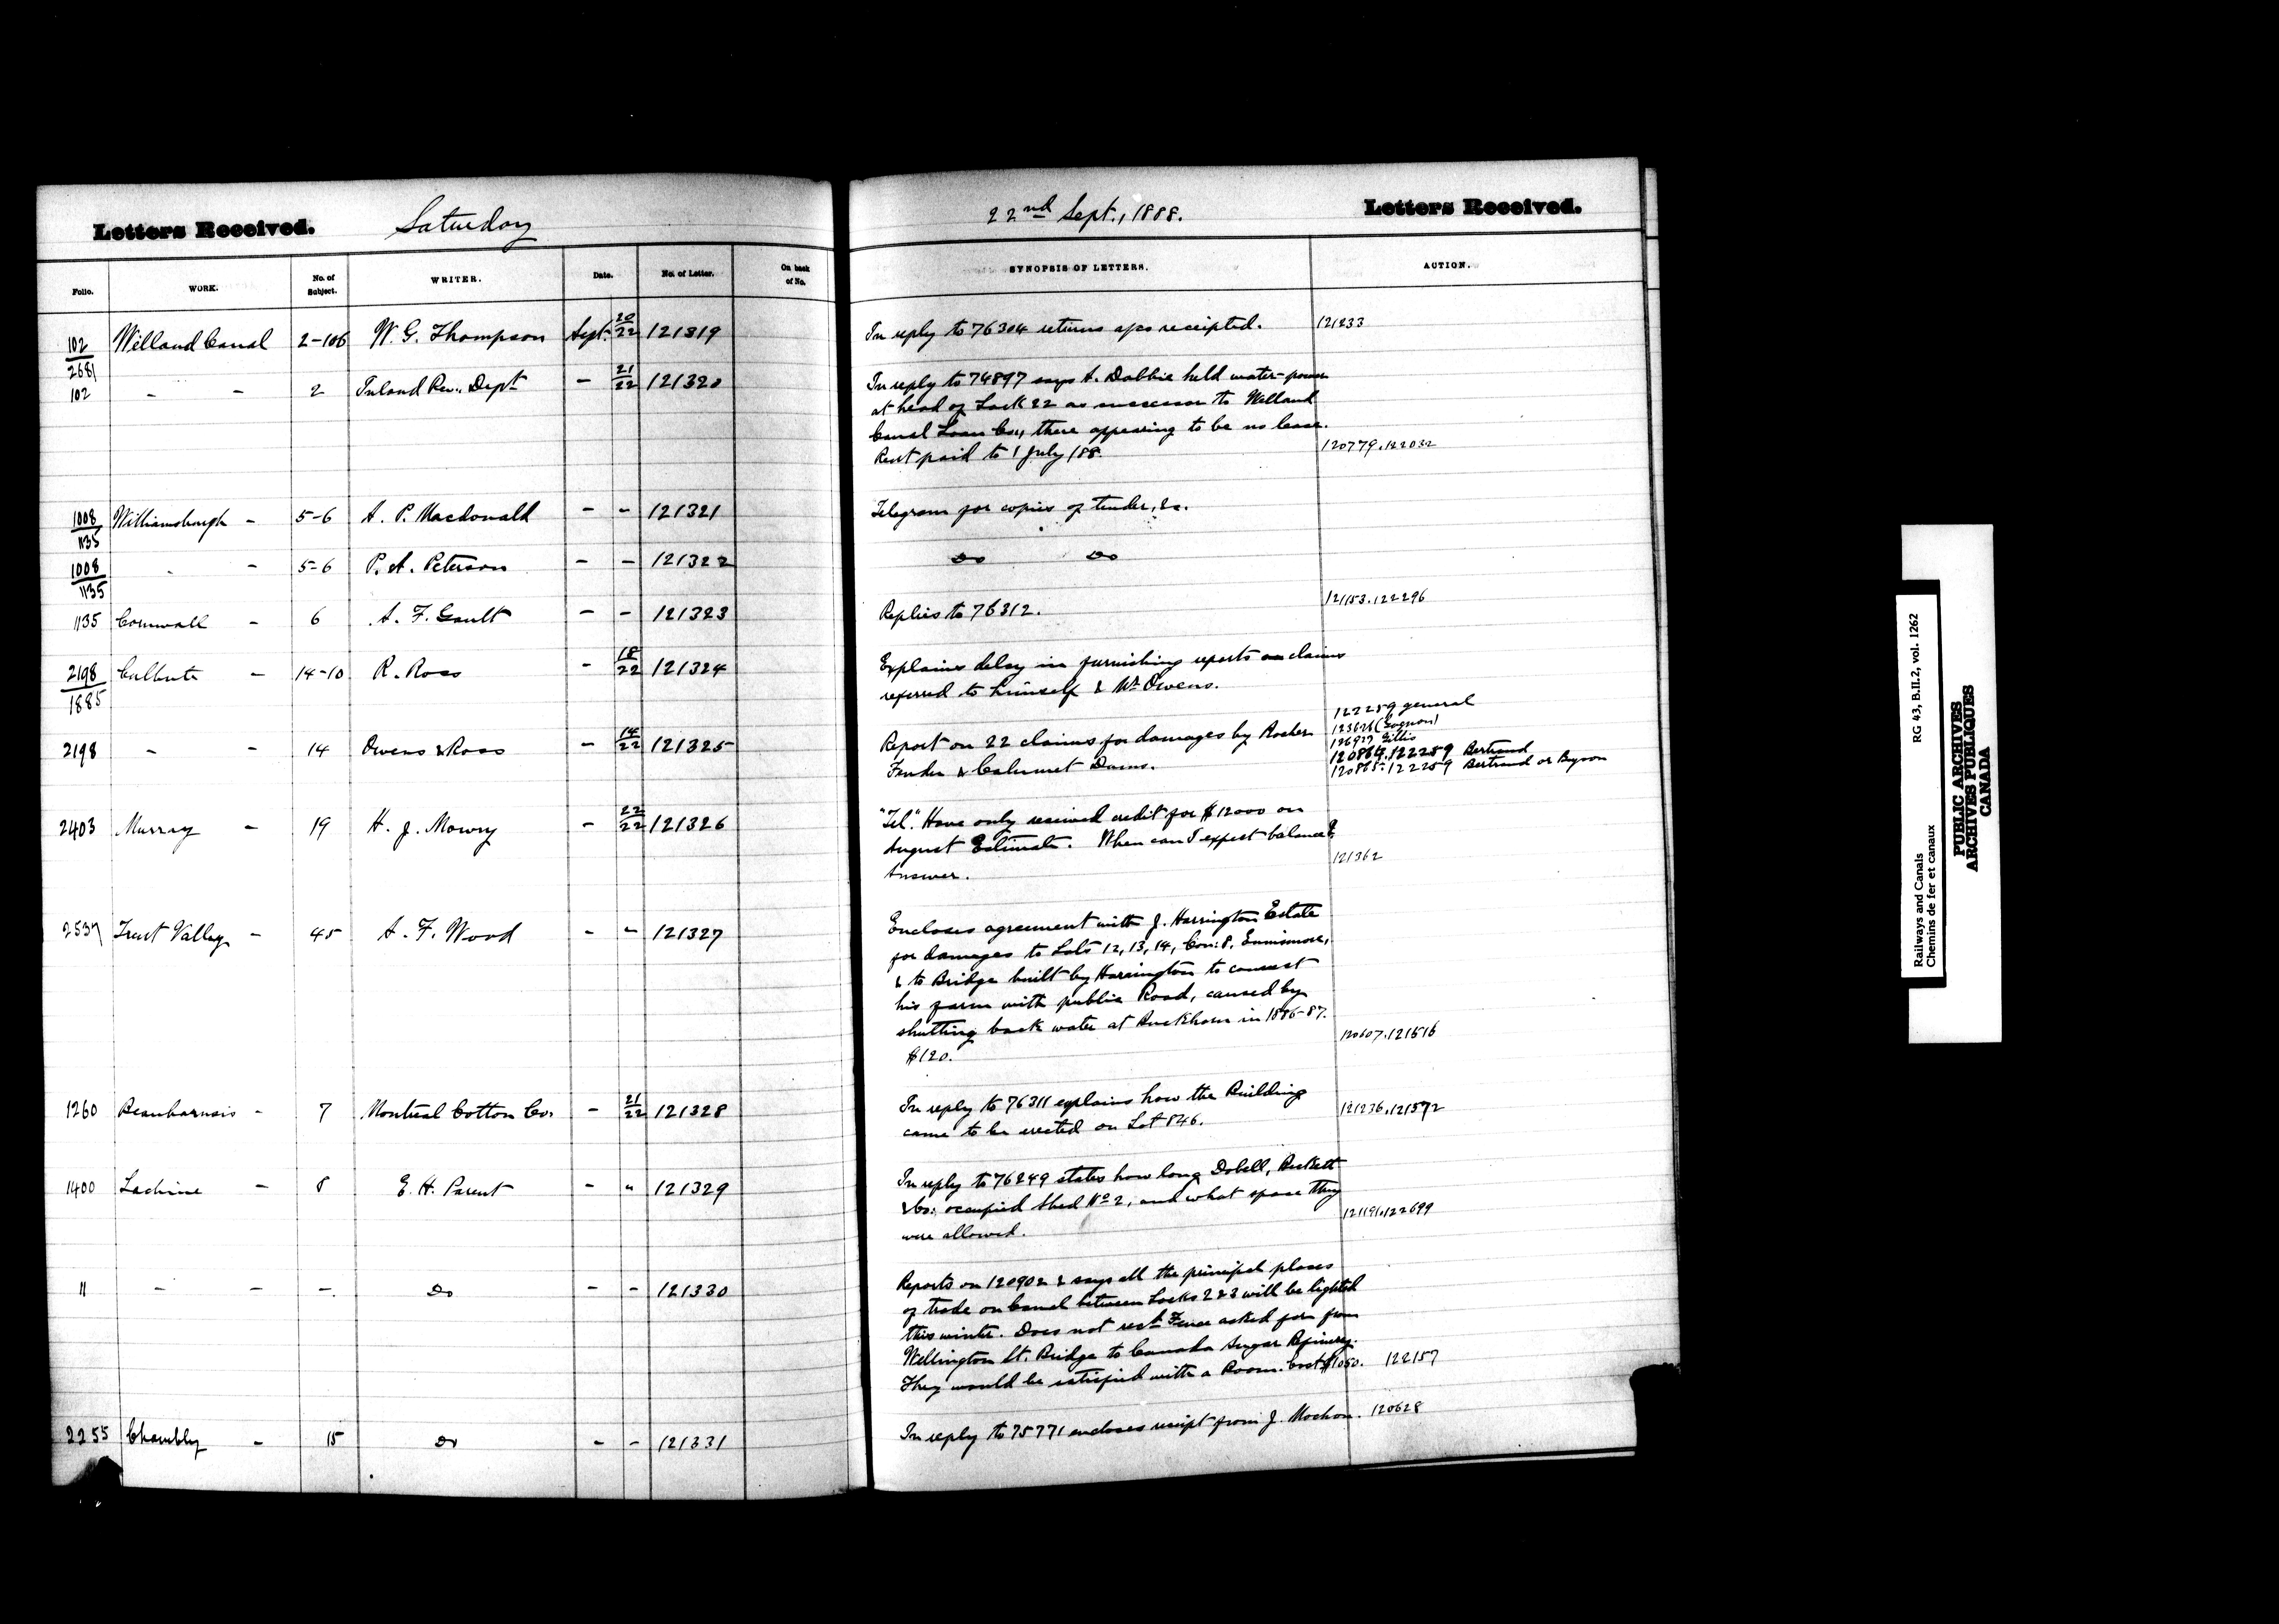 Letters Received.
Saturday
22nd Sept., 1888.
Letters Received.
Folio. WORK. No. of Subject. WRITER. Date. No. of Letter. On back of No. SYNOPSIS OF LETTERS. ACTION.
102/2681 Welland Canal 2-106 W. G. Thompson Sept. 20/22 121319 In reply to 76304 returns a/cs receipted. 121233
102 - - 2 Inland Rev. Dept - 21/22 121320 In reply to 74897 says A. Dobbie held water-power
at head of Lock 22 as successor to Welland
Canal Loan Co., there appearing to be no lease.
Rent paid to 1 July /88. 120779.122032
1008/1135 Williamsburgh - 5-6 A. P. Macdonald - - 121321 Telegram for copies of tender, &c.
1008/1135 - - 5-6 P. A. Peterson - - 121322 Do Do
1135 Cornwall - 6 A. F. Gault - - 121323 Replies to 76312. 121153.122296
2198/1885 Culbute - 14-10 R. Ross - 18/22 121324 Explains delay in furnishing reports on claims
referred to himself & Mr. Owens.
2198 - - 14 Owens & Ross - 14/22 121325 Report on 22 claims for damages by Rocher
Fendu & Calumet Dams.
122259 general
(Gagnon)
126927 Gillis
120864.122259 Bertrand
120865.122259 Bertrand or Byson
2403 Murray - 19 H. J. Mowry - 22/22 121326 "Tel." Have only received credit for $12000 on
August Estimate. When can I expect balance?
Answer. 121362
2537 Trent Valley - 45 A. F. Wood - " 121327 Encloses agreement with J. Harrington Estate
for damages to Lots 12, 13, 14, Con: 8, Ennismore,
& to Bridge built by Harrington to connect
his farm with public Road, caused by
shutting back water at Buckhorn in 1886-87.
$120. 120607.121516
1260 Beauharnois - 7 Montreal Cotton Co. - 21/22 121328 In reply to 76311 explains how the Building
came to be erected on Lot 846. 121236.121572
1400 Lachine - 8 E. H. Parent - " 121329 In reply to 76249 states how long Dobell, Beckett
& Co: occupied Shed No 2, and what space they
were allowed. 121191.122699
11 - - -. Do - - 121330 Reports on 120902 & says all the principal places
of trade on Canal between Locks 2 & 3 will be lighted
this winter. Does not rect Fence asked for from
Wellington St. Bridge to Canada Sugar Refinery.
They would be satisfied with a Boom. Cost $1050. 122157
2255 Chambly - 15 Do - - 121331 In reply to 75771 encloses receipt from J. Mochon. 120628
RG 43, B.II.2, vol. 1262
Railways and Canals
Chemins de fer et canaux
PUBLIC ARCHIVES
ARCHIVES PUBLIQUES
CANADA